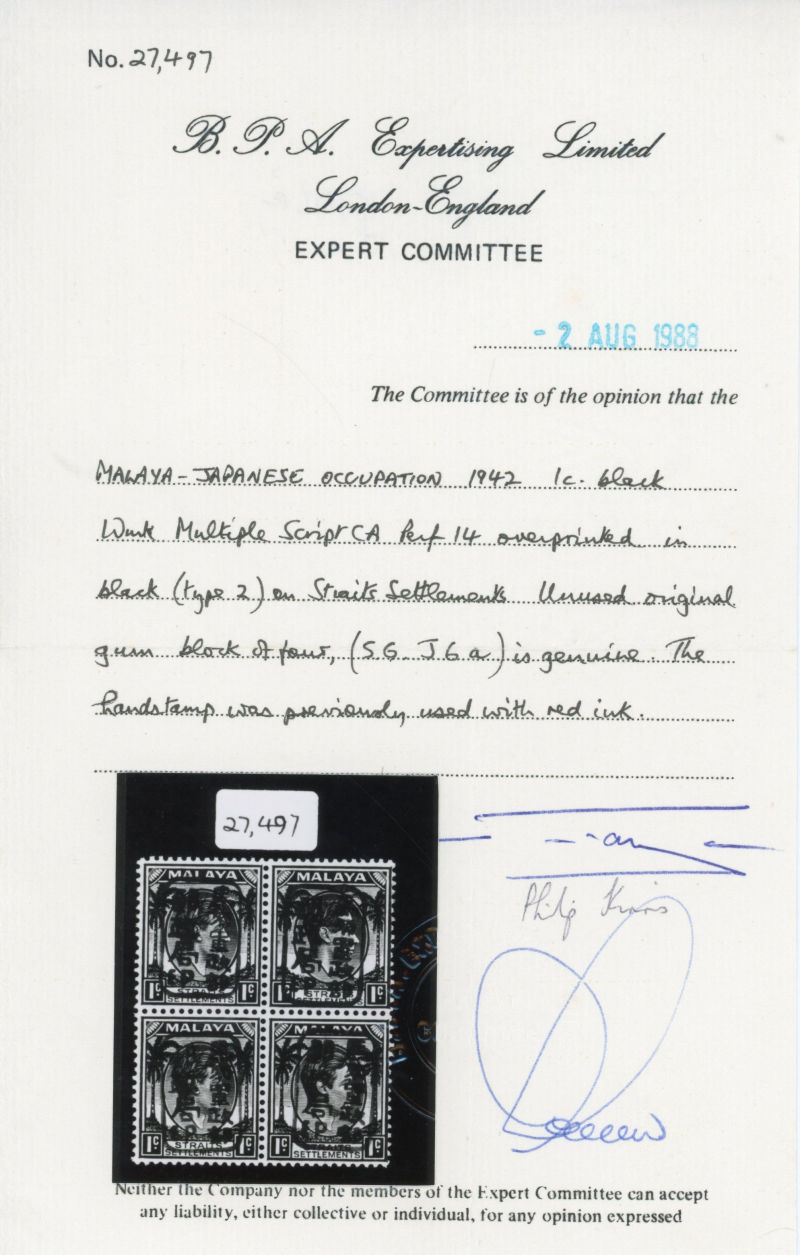 No. 27,497
B. P. A. Expertising Limited
London-England
EXPERT COMMITTEE
- 2 AUG 1988
The Committee is of the opinion that the
MALAYA - JAPANESE OCCUPATION 1942 1c. black
Wmk Multiple Script CA Perf 14 overprinted in
black (type 2) on Straits Settlements Unused original
gum block of four, (SG JGa) is genuine. The
handstamp was previously used with red ink.
27,497
MALAYA MALAYA
1c STRAITS SETTLEMENTS 1c 1c STRAITS SETTLEMENTS 1c
MALAYA MALAYA
1c STRAITS SETTLEMENTS 1c 1c SETTLEMENTS 1c
Philip
Neither the Company nor the members of the Expert Committee can accept
any liability, either collective or individual, for any opinion expressed